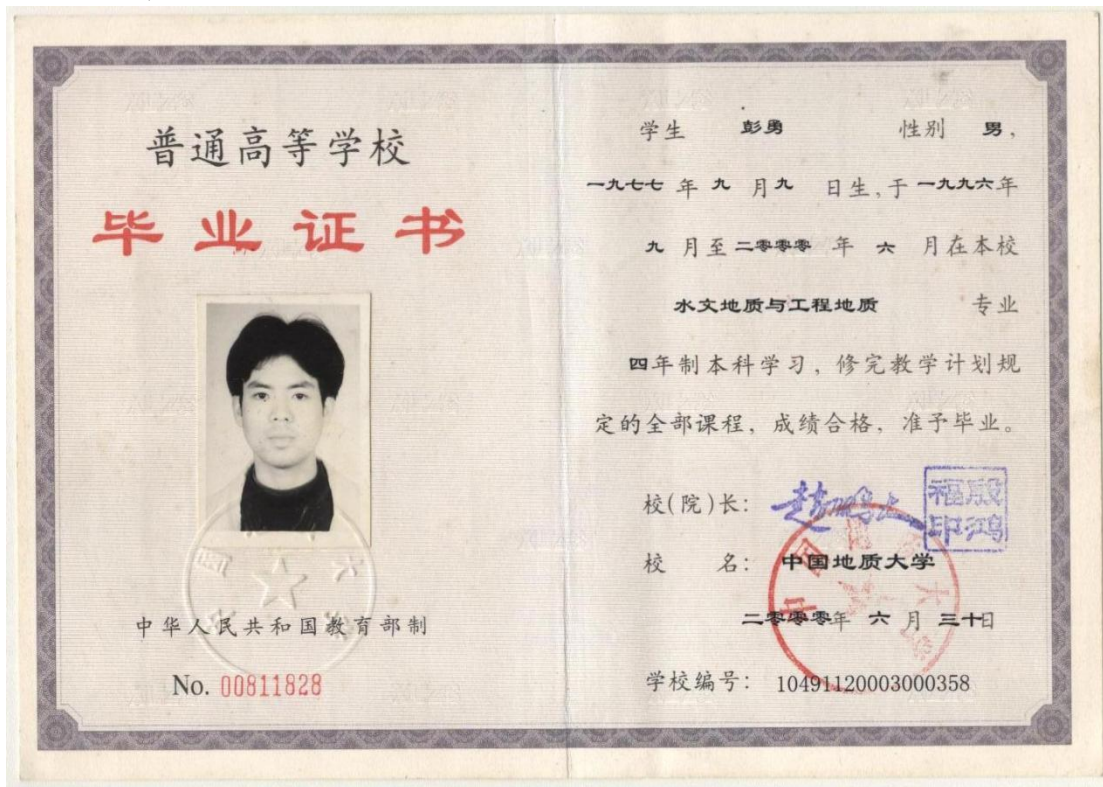 普通高等学校
毕业证书
中华人民共和国教育部制
No. 00811828
学生 彭勇 性别 男，
一九七七 年 九 月 九 日生，于 一九九六年
九 月至 二零零零 年 六 月在本校
水文地质与工程地质 专业
四年制本科学习，修完教学计划规
定的全部课程，成绩合格，准予毕业。
校(院)长：
殷鸿福印
校 名： 中国地质大学
二零零零年 六 月 三十日
学校编号： 10491120003000358